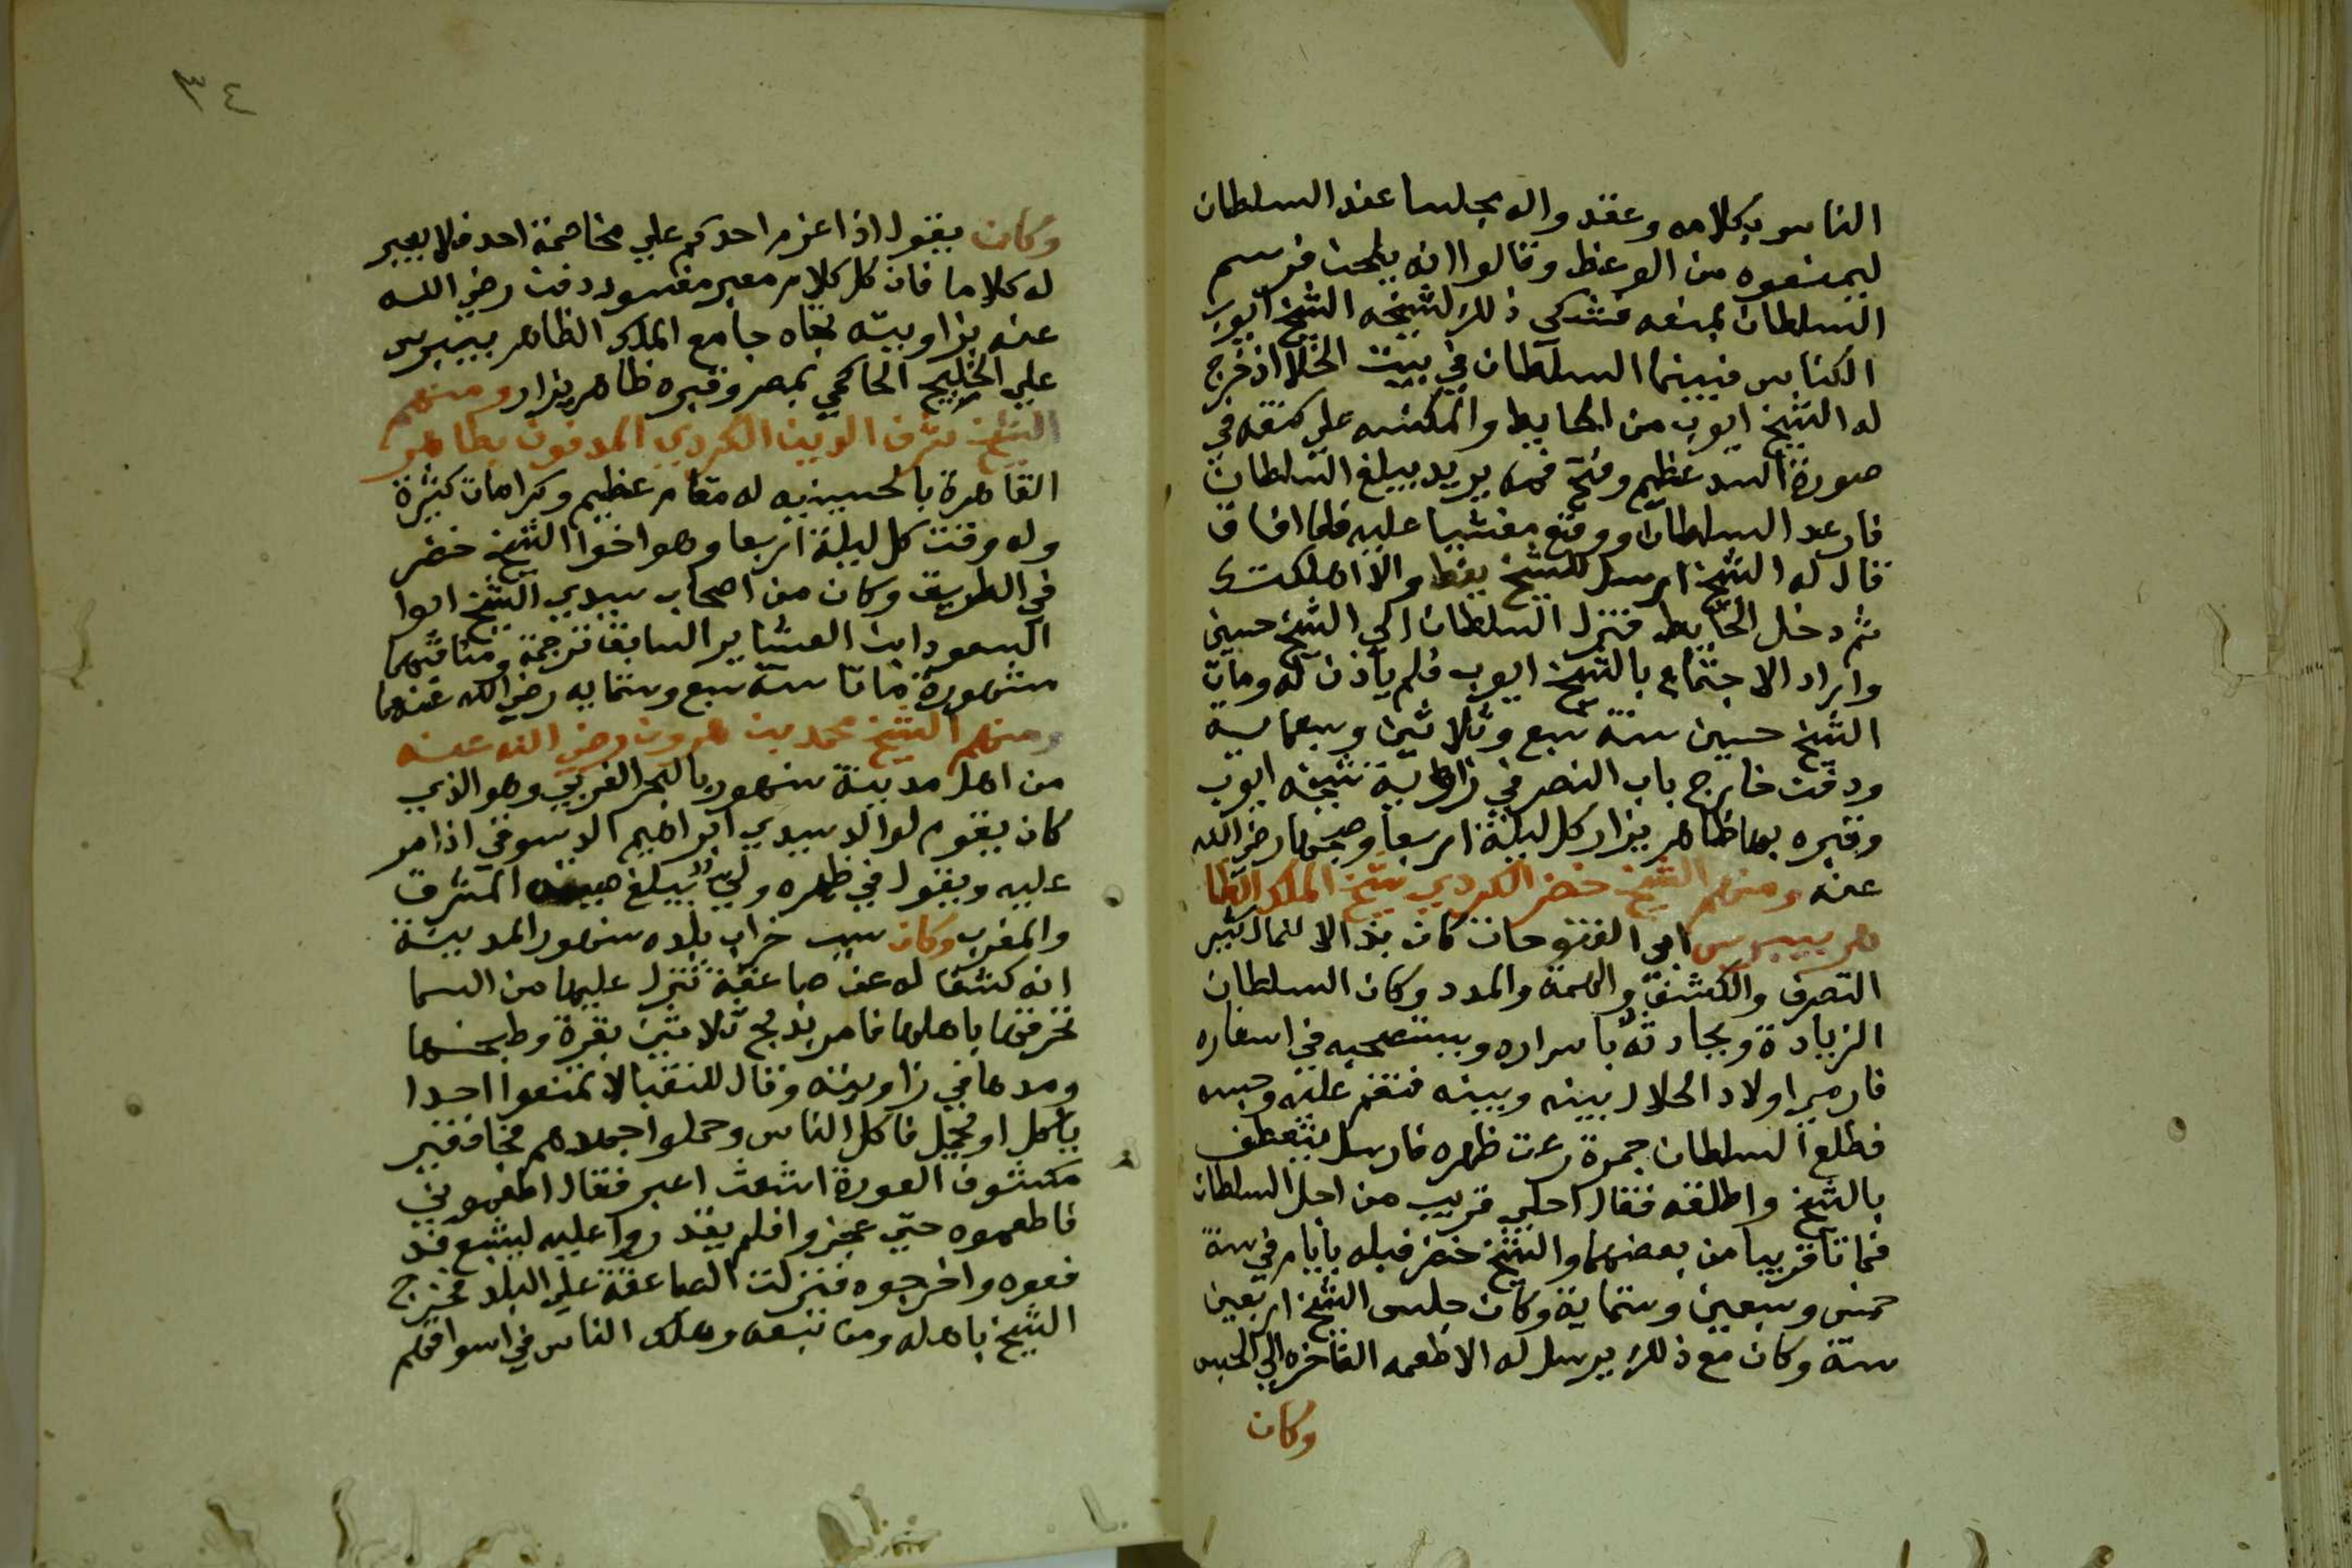 الناس بكلامه وعقدوا له مجلسا عند السلطان
ليمنعوه من الوعظ وقالوا انه يلحن فرسم
السلطان بمنعه فشكى ذلك لشيخه الشيخ ايوب
الكناس فبينما السلطان في بيت الخلا اذ خرج
له الشيخ ايوب من الحايط والمكنسه علي كتفه في
صورة اسد عظيم وفتح فمه يريد يبلغ السلطان
فارعد السلطان ووقع مغشيا عليه فلما افاق
قال له الشيخ ارسل للشيخ يعظ والا اهلكتك
ثم دخل الحايط فنزل السلطان الي الشيخ حسين
واراد الاجتماع بالشيخ ايوب فلم ياذن له ومات
الشيخ حسين سنة سبع وثلاثين وسبعماية
ودفن خارج باب النصر في زاوية شيخه ايوب
وقبره بها ظاهر يزار كل ليلة اربعا وصبحها رضي الله
عنه ومنهم الشيخ خضر الكردي شيخ الملك الظا
هر بيبرس ابي الفتوحات كان بذ الا للمال كثير
التصرف والكشف والهمة والمدد وكان السلطان
الزيادة ويحادثه باسراره ويستصحبه في اسفاره
فارمي اولاد الحلال بينه وبينه فنقم عليه وحبسه
فطلع السلطان جمرة رعت ظهره فارسل يتعطف
بالشيخ واطلقه فقال اجلي قريب من اجل السلطان
فماتا قريبا من بعضهما والشيخ خضر قبله بايام في سنة
خمس وسبعين وستماية وكان حبس الشيخ اربعين
سنة وكان مع ذلك يرسل له الاطعمه الفاخره الي الحبس
وكان
٣٤
وكان يقول اذا عزم احدكم علي مخاصمة احد فلا يعبر
له كلاما فان كل كلام معبر مفسود دفن رضي الله
عنه بزاويته تجاه جامع الملك الظاهر بيبرس
علي الخليج الحاكمي بمصر وقبره ظاهر يزار ومنهم
الشيخ شرف الدين الكردي المدفون بظاهر
القاهرة بالحسينيه له مقام عظيم وكرامات كثيرة
وله وقت كل ليلة اربعا وهو اخوا الشيخ خضر
في الطريق وكان من اصحاب سيدي الشيخ ابوا
السعود ابن العشاير السابق ترجمة ومناقبهما
مشهورة ماتا سنة سبع وستمايه رضي الله عنهما
ومنهم الشيخ محمد بن هرون رضي الله عنه
من اهل مدينة سنهور بالبحر الغربي وهو الذي
كان يقوم لوالد سيدي ابراهيم الدسوقي اذا مر
عليه ويقول في ظهره ولي يبلغ صيته المشرق
والمغرب وكان سبب خراب بلده سنهور المدينة
انه كشف له عن صاعقة تنزل عليها من السما
تخرقها باهلها فامر بذبح ثلاثين بقرة وطبخها
ومدها في زاويته وقال للنقبا لا تمنعوا احدا
ياكل او يحمل فاكل الناس وحملوا جملاهم فجا فقير
مكشوف العورة اشعث اغبر فقال اطعموني
فاطعموه حتي عجزوا فلم يقدروا عليه ليشبع فد
فعوه واخرجوه فنزلت الصاعقة علي البلد فخرج
الشيخ باهله ومن تبعه وهلك الناس في اسواقهم